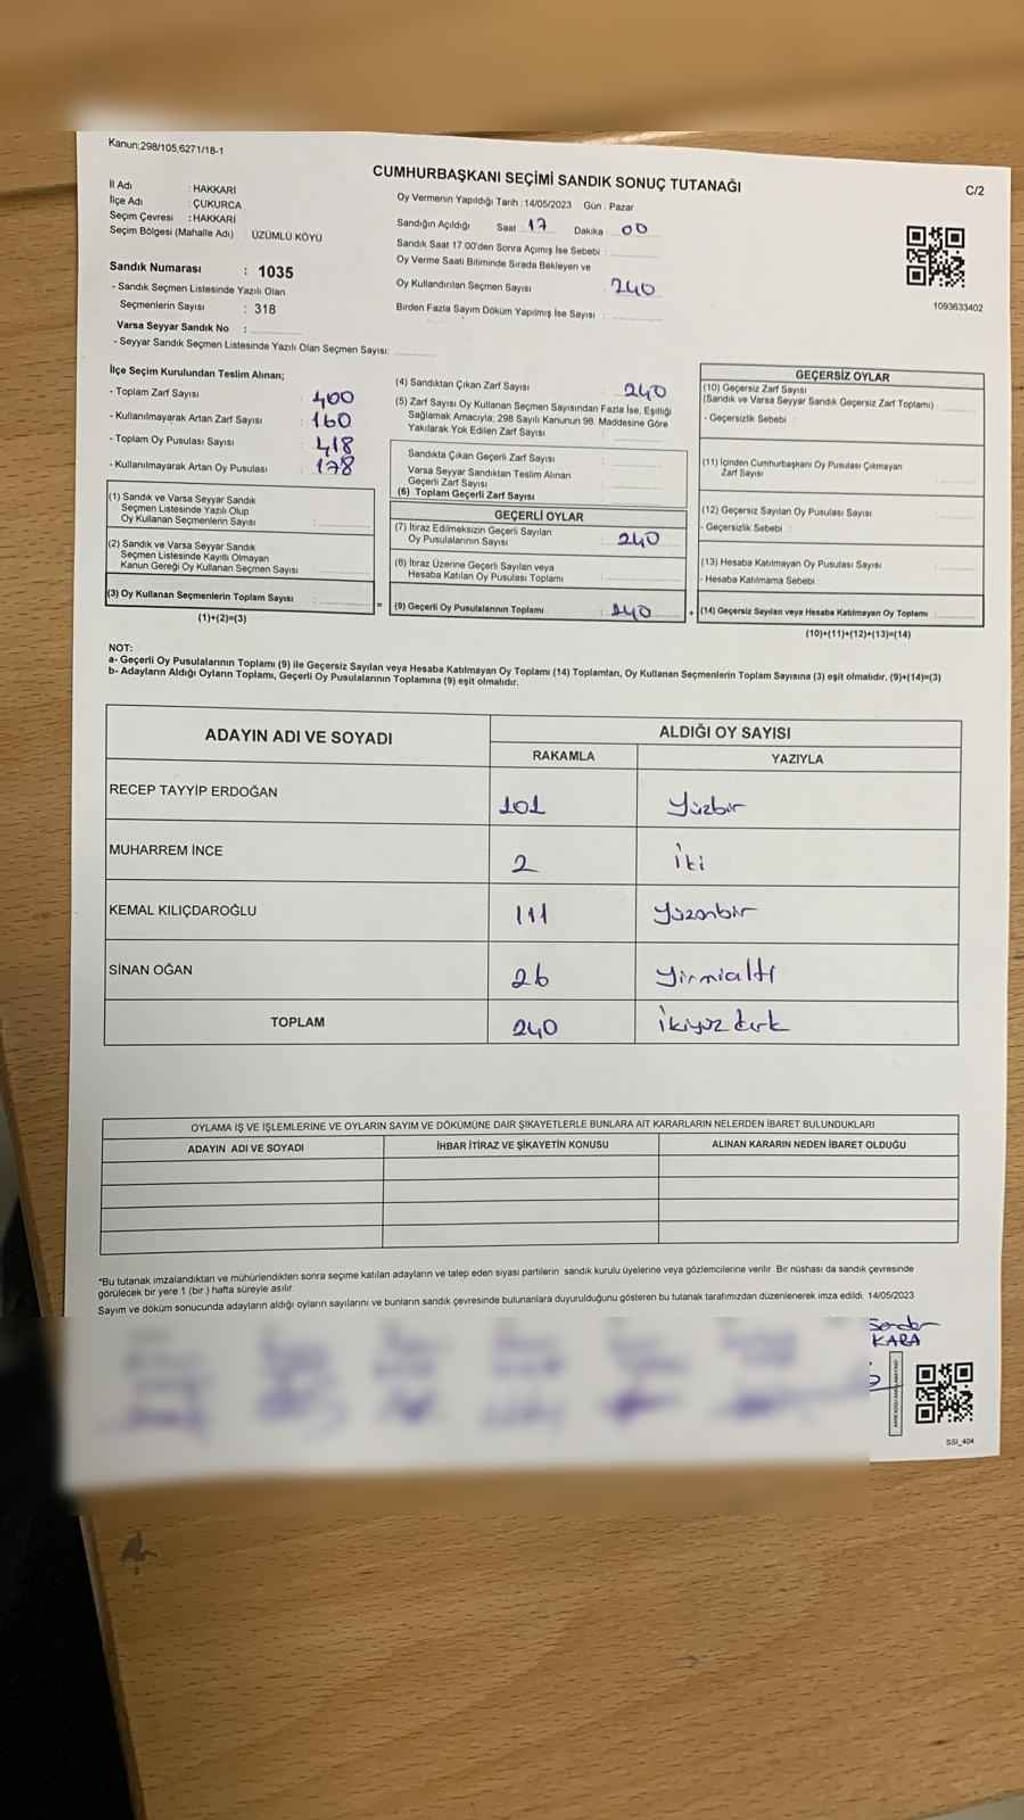 Kanun:298/105,6271/18-1
CUMHURBAŞKANI SEÇİMİ SANDIK SONUÇ TUTANAĞI
C/2
İl Adı : HAKKARİ
İlçe Adı : ÇUKURCA
Seçim Çevresi : HAKKARİ
Seçim Bölgesi (Mahalle Adı) ÜZÜMLÜ KÖYÜ
Sandık Numarası : 1035
- Sandık Seçmen Listesinde Yazılı Olan
Seçmenlerin Sayısı : 318
Varsa Seyyar Sandık No :
- Seyyar Sandık Seçmen Listesinde Yazılı Olan Seçmen Sayısı:
Oy Vermenin Yapıldığı Tarih : 14/05/2023 Gün : Pazar
Sandığın Açıldığı Saat 17 Dakika 00
Sandık Saat 17:00'den Sonra Açımış İse Sebebi :
Oy Verme Saati Bitiminde Sırada Bekleyen ve
Oy Kullandırılan Seçmen Sayısı 240
Birden Fazla Sayım Döküm Yapılmış İse Sayısı :
1093633402
İlçe Seçim Kurulundan Teslim Alınan;
- Toplam Zarf Sayısı 400
- Kullanılmayarak Artan Zarf Sayısı : 160
- Toplam Oy Pusulası Sayısı : 418
- Kullanılmayarak Artan Oy Pusulası : 178
(1) Sandık ve Varsa Seyyar Sandık
Seçmen Listesinde Yazılı Olup
Oy Kullanan Seçmenlerin Sayısı :
(2) Sandık ve Varsa Seyyar Sandık
Seçmen Listesinde Kayıtlı Olmayan
Kanun Gereği Oy Kullanan Seçmen Sayısı :
(3) Oy Kullanan Seçmenlerin Toplam Sayısı :
(1)+(2)=(3)
(4) Sandıktan Çıkan Zarf Sayısı 240
(5) Zarf Sayısı Oy Kullanan Seçmen Sayısından Fazla İse, Eşitliği
Sağlamak Amacıyla; 298 Sayılı Kanunun 98. Maddesine Göre
Yakılarak Yok Edilen Zarf Sayısı
Sandıkta Çıkan Geçerli Zarf Sayısı
Varsa Seyyar Sandıktan Teslim Alınan
Geçerli Zarf Sayısı
(6) Toplam Geçerli Zarf Sayısı
GEÇERLİ OYLAR
(7) İtiraz Edilmeksizin Geçerli Sayılan
Oy Pusulalarının Sayısı 240
(8) İtiraz Üzerine Geçerli Sayılan veya
Hesaba Katılan Oy Pusulası Toplamı
= (9) Geçerli Oy Pusulalarının Toplamı : 240
GEÇERSİZ OYLAR
(10) Geçersiz Zarf Sayısı
(Sandık ve Varsa Seyyar Sandık Geçersiz Zarf Toplamı)
- Geçersizlik Sebebi :
(11) İçinden Cumhurbaşkanı Oy Pusulası Çıkmayan
Zarf Sayısı
(12) Geçersiz Sayılan Oy Pusulası Sayısı
- Geçersizlik Sebebi :
(13) Hesaba Katılmayan Oy Pusulası Sayısı
- Hesaba Katılmama Sebebi
+ (14) Geçersiz Sayılan veya Hesaba Katılmayan Oy Toplamı :
(10)+(11)+(12)+(13)=(14)
NOT:
a- Geçerli Oy Pusulalarının Toplamı (9) ile Geçersiz Sayılan veya Hesaba Katılmayan Oy Toplamı (14) Toplamları, Oy Kullanan Seçmenlerin Toplam Sayısına (3) eşit olmalıdır. (9)+(14)=(3)
b- Adayların Aldığı Oyların Toplamı, Geçerli Oy Pusulalarının Toplamına (9) eşit olmalıdır.
ADAYIN ADI VE SOYADI ALDIĞI OY SAYISI
RAKAMLA YAZIYLA
RECEP TAYYİP ERDOĞAN 101 Yüzbir
MUHARREM İNCE 2 İki
KEMAL KILIÇDAROĞLU 111 Yüzonbir
SİNAN OĞAN 26 Yirmialtı
TOPLAM 240 İkiyüz kırk
OYLAMA İŞ VE İŞLEMLERİNE VE OYLARIN SAYIM VE DÖKÜMÜNE DAİR ŞİKAYETLERLE BUNLARA AİT KARARLARIN NELERDEN İBARET BULUNDUKLARI
ADAYIN ADI VE SOYADI İHBAR İTİRAZ VE ŞİKAYETİN KONUSU ALINAN KARARIN NEDEN İBARET OLDUĞU
*Bu tutanak imzalandıktan ve mühürlendikten sonra seçime katılan adayların ve talep eden siyasi partilerin sandık kurulu üyelerine veya gözlemcilerine verilir. Bir nüshası da sandık çevresinde
görülecek bir yere 1 (bir) hafta süreyle asılır.
Sayım ve döküm sonucunda adayların aldığı oyların sayılarını ve bunların sandık çevresinde bulunanlara duyurulduğunu gösteren bu tutanak tarafımızdan düzenlenerek imza edildi. 14/05/2023
Serdar
KARA
SSI_404